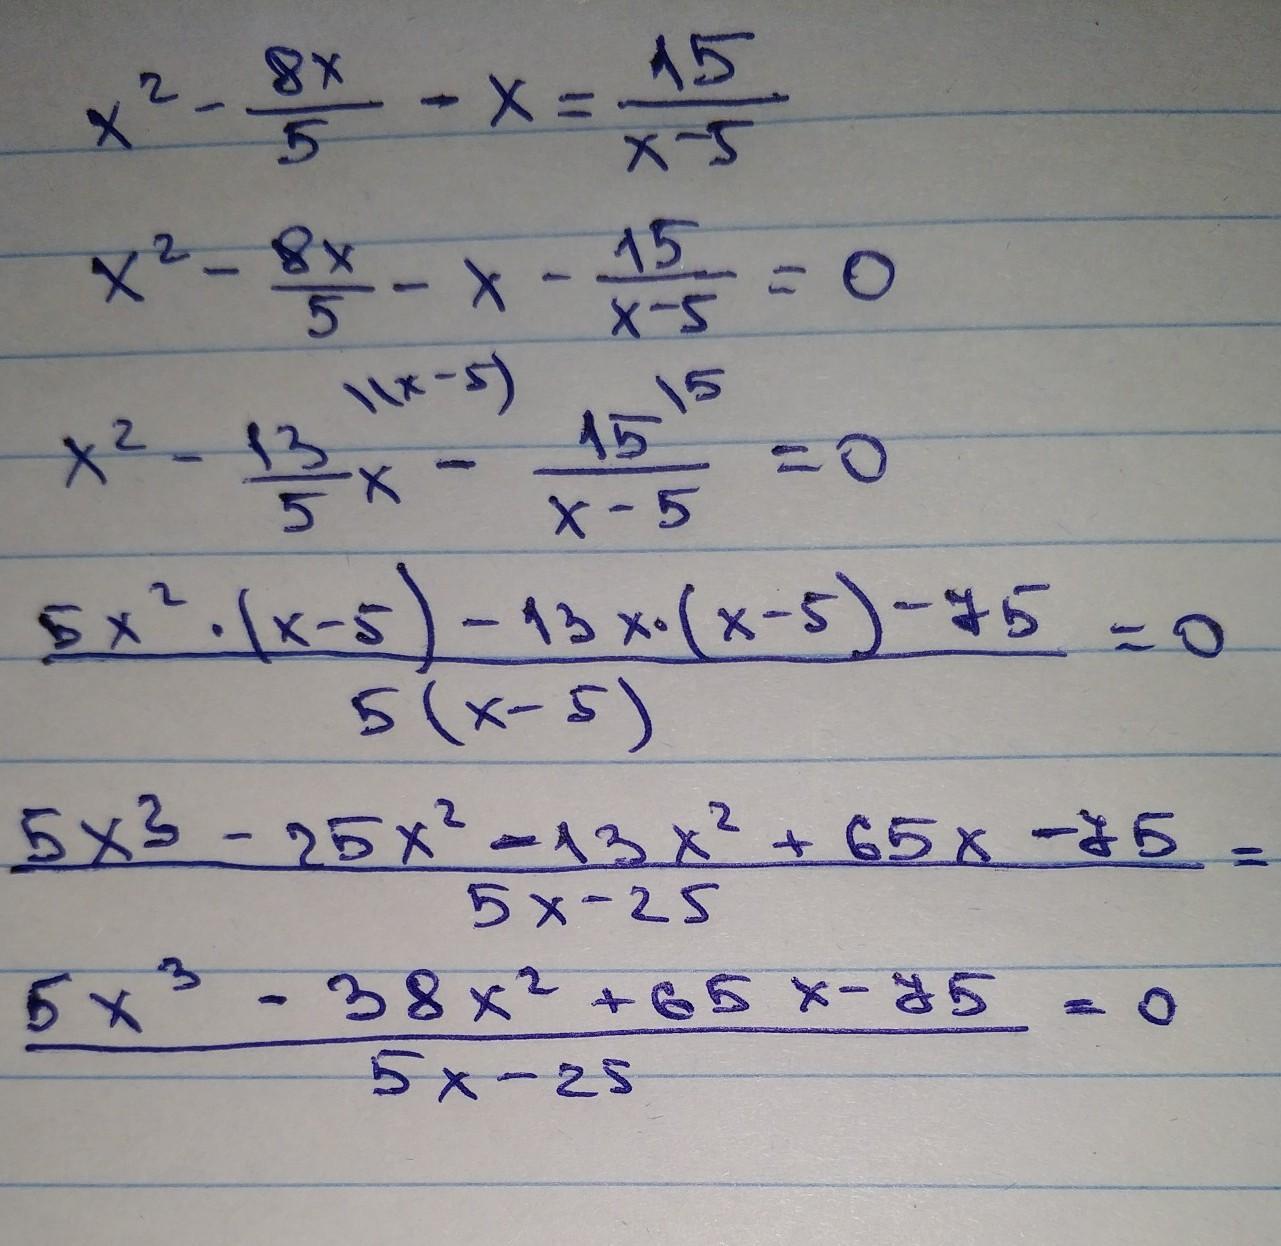 x² - 8x/5 - x = 15/(x-5)
x² - 8x/5 - x - 15/(x-5) = 0
x² - 13/5 x \(x-5) - 15/(x-5) \5 = 0
(5x² · (x-5) - 13x · (x-5) - 75)/(5(x-5)) = 0
(5x³ - 25x² - 13x² + 65x - 75)/(5x-25) =
(5x³ - 38x² + 65x - 75)/(5x-25) = 0